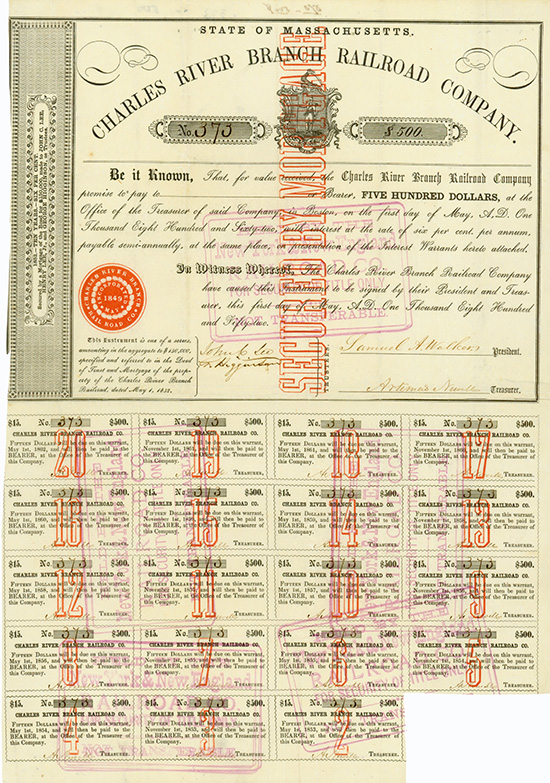 STATE OF MASSACHUSETTS.
CHARLES RIVER BRANCH RAILROAD COMPANY.
No. 373
$500.
SECURED BY MORTGAGE
Be it Known, That, for value received, the Charles River Branch Railroad Company
promise to pay to or Bearer, FIVE HUNDRED DOLLARS, at
the Office of the Treasurer of said Company, in Boston, on the first day of May, A.D. One
Thousand Eight Hundred and Sixty-two, with interest at the rate of six per cent. per annum,
payable semi-annually, at the same place, on presentation of the Interest Warrants hereto attached.
In Witness Whereof, The Charles River Branch Railroad Company
have caused this Instrument to be signed by their President and Treas-
urer, this first day of May, A.D. One Thousand Eight Hundred
and Fifty-two.
CHARLES RIVER BRANCH
RAIL ROAD CO.
INCORPORATED
1849
MAY
NOT TRANSFERABLE
This Instrument is one of a series,
amounting in the aggregate to $150,000,
specified and referred to in the Deed
of Trust and Mortgage of the property
of the Charles River Branch
Railroad, dated May 1, 1852.
John C Lee
TRUSTEES.
President.
Treasurer.
$15. No. 373 $500.
CHARLES RIVER BRANCH RAILROAD CO.
FIFTEEN DOLLARS will be due on this warrant,
May 1st, 1862, and will then be paid to
BEARER, at the Office of the Treasurer of
this Company.
20
TREASURER.
$15. No. 373 $500.
CHARLES RIVER BRANCH RAILROAD CO.
FIFTEEN DOLLARS will be due on this warrant,
November 1st, 1861, and will then be paid to
BEARER, at the Office of the Treasurer of
this Company.
19
TREASURER.
$15. No. 373 $500.
CHARLES RIVER BRANCH RAILROAD CO.
FIFTEEN DOLLARS will be due on this warrant,
May 1st, 1861, and will then be paid to
BEARER, at the Office of the Treasurer of
this Company.
18
TREASURER.
$15. No. 373 $500.
CHARLES RIVER BRANCH RAILROAD CO.
FIFTEEN DOLLARS will be due on this warrant,
November 1st, 1860, and will then be paid to
BEARER, at the Office of the Treasurer of
this Company.
17
TREASURER.
$15. No. 373 $500.
CHARLES RIVER BRANCH RAILROAD CO.
FIFTEEN DOLLARS will be due on this warrant,
May 1st, 1860, and will then be paid to
BEARER, at the Office of the Treasurer of
this Company.
16
TREASURER.
$15. No. 373 $500.
CHARLES RIVER BRANCH RAILROAD CO.
FIFTEEN DOLLARS will be due on this warrant,
November 1st, 1859, and will then be paid to
BEARER, at the Office of the Treasurer of
this Company.
15
TREASURER.
$15. No. 373 $500.
CHARLES RIVER BRANCH RAILROAD CO.
FIFTEEN DOLLARS will be due on this warrant,
May 1st, 1859, and will then be paid to
BEARER, at the Office of the Treasurer of
this Company.
14
TREASURER.
$15. No. 373 $500.
CHARLES RIVER BRANCH RAILROAD CO.
FIFTEEN DOLLARS will be due on this warrant,
November 1st, 1858, and will then be paid to
BEARER, at the Office of the Treasurer of
this Company.
13
TREASURER.
$15. No. 373 $500.
CHARLES RIVER BRANCH RAILROAD CO.
FIFTEEN DOLLARS will be due on this warrant,
May 1st, 1858, and will then be paid to
BEARER, at the Office of the Treasurer of
this Company.
12
TREASURER.
$15. No. 373 $500.
CHARLES RIVER BRANCH RAILROAD CO.
FIFTEEN DOLLARS will be due on this warrant,
November 1st, 1857, and will then be paid to
BEARER, at the Office of the Treasurer of
this Company.
11
TREASURER.
$15. No. 373 $500.
CHARLES RIVER BRANCH RAILROAD CO.
FIFTEEN DOLLARS will be due on this warrant,
May 1st, 1857, and will then be paid to
BEARER, at the Office of the Treasurer of
this Company.
10
TREASURER.
$15. No. 373 $500.
CHARLES RIVER BRANCH RAILROAD CO.
FIFTEEN DOLLARS will be due on this warrant,
November 1st, 1856, and will then be paid to
BEARER, at the Office of the Treasurer of
this Company.
9
TREASURER.
$15. No. 373 $500.
CHARLES RIVER BRANCH RAILROAD CO.
FIFTEEN DOLLARS will be due on this warrant,
May 1st, 1856, and will then be paid to
BEARER, at the Office of the Treasurer of
this Company.
8
TREASURER.
$15. No. 373 $500.
CHARLES RIVER BRANCH RAILROAD CO.
FIFTEEN DOLLARS will be due on this warrant,
November 1st, 1855, and will then be paid to
BEARER, at the Office of the Treasurer of
this Company.
7
TREASURER.
$15. No. 373 $500.
CHARLES RIVER BRANCH RAILROAD CO.
FIFTEEN DOLLARS will be due on this warrant,
May 1st, 1855, and will then be paid to
BEARER, at the Office of the Treasurer of
this Company.
6
TREASURER.
$15. No. 373 $500.
CHARLES RIVER BRANCH RAILROAD CO.
FIFTEEN DOLLARS will be due on this warrant,
November 1st, 1854, and will then be paid to
BEARER, at the Office of the Treasurer of
this Company.
5
TREASURER.
$15. No. 373 $500.
CHARLES RIVER BRANCH RAILROAD CO.
FIFTEEN DOLLARS will be due on this warrant,
May 1st, 1854, and will then be paid to
BEARER, at the Office of the Treasurer of
this Company.
4
TREASURER.
$15. No. 373 $500.
CHARLES RIVER BRANCH RAILROAD CO.
FIFTEEN DOLLARS will be due on this warrant,
November 1st, 1853, and will then be paid to
BEARER, at the Office of the Treasurer of
this Company.
3
TREASURER.
$15. No. 373 $500.
CHARLES RIVER BRANCH RAILROAD CO.
FIFTEEN DOLLARS will be due on this warrant,
May 1st, 1853, and will then be paid to
BEARER, at the Office of the Treasurer of
this Company.
2
TREASURER.